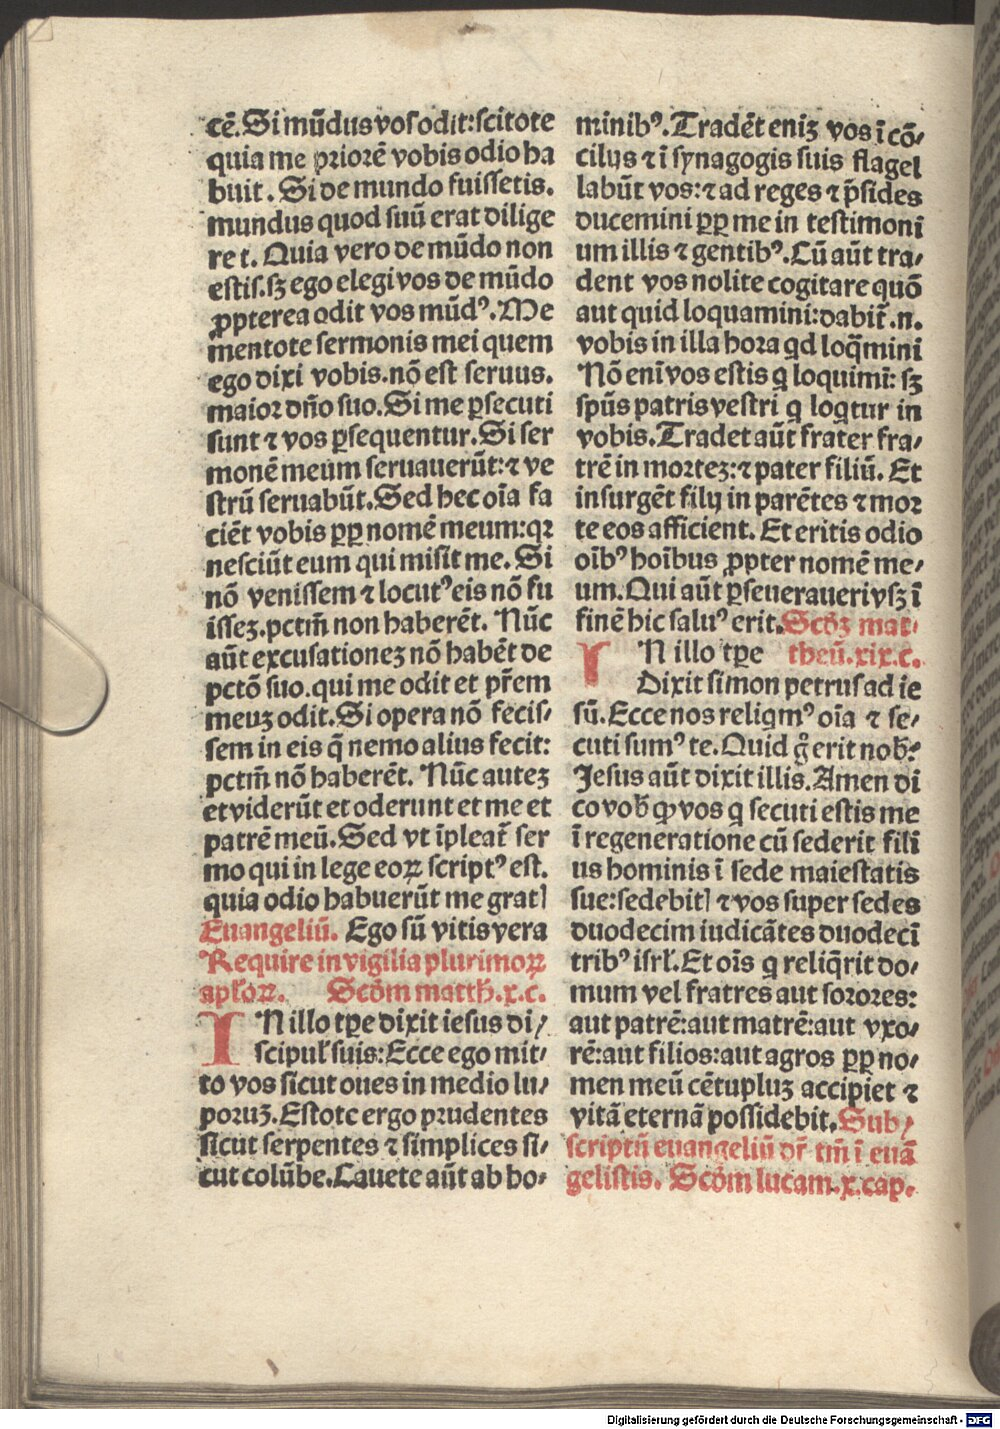 cē. Si mūdus vos odit: scitote
quia me priorē vobis odio ha
buit. Si de mundo fuissetis.
mundus quod suū erat dilige
ret. Quia vero de mūdo non
estis. sꝫ ego elegi vos de mūdo
ꝓpterea odit vos mūdꝰ. Me
mentote sermonis mei quem
ego dixi vobis. nō est seruus.
maior dño suo. Si me ꝑsecuti
sunt ⁊ vos ꝑsequentur. Si ser
monē meum seruauerūt: ⁊ ve
strū seruabūt. Sed hec oīa fa
ciēt vobis ꝓpꝑ nomē meum: qꝛ
nesciūt eum qui misit me. Si
nō venissem ⁊ locutꝰ eis nō fu
isseꝫ. pctm̄ non haberēt. Nūc
aūt excusationeꝫ nō habēt de
pctō suo. qui me odit et pr̄em
meuꝫ odit. Si opera nō fecis⸗
sem in eis q̄ nemo alius fecit:
pctm̄ nō haberēt. Nūc auteꝫ
et viderūt et oderunt et me et
patrē meū. Sed vt īpleat̄ ser
mo qui in lege eoꝝ scriptꝰ est.
quia odio habuerūt me gratꝭ
Euangeliū. Ego sū vitis vera
Require in vigilia plurimoꝝ
apl'oꝝ. Scd̄m matth. x. c.
IN illo tꝑe dixit iesus di⸗
scipul' suis: Ecce ego mit⸗
to vos sicut oues in medio lu⸗
poruꝫ. Estote ergo prudentes
sicut serpentes ⁊ simplices si⸗
cut colūbe. Cauete aūt ab ho⸗
minibꝰ. Tradēt eniꝫ vos ī cō⸗
cilijs ⁊ ī synagogis suis flagel
labūt vos: ⁊ ad reges ⁊ p̄sides
ducemini ꝓpꝑ me in testimoni
um illis ⁊ gentibꝰ. Cū aūt tra⸗
dent vos nolite cogitare quō
aut quid loquamini: dabit̄ .n.
vobis in illa hora qd loq̄mini
Nō enī vos estis q loquimī: sꝫ
spūs patris vestri q loqtur in
vobis. Tradet aūt frater fra⸗
trē in morteꝫ: ⁊ pater filiū. Et
insurgēt filij in parētes ⁊ mor
te eos afficient. Et eritis odio
oībꝰ hoībus ꝓpter nomē me⸗
um. Qui aūt ꝑseuerauerivsꝫ ī
finē hic saluꝰ erit. Scd̄ꝫ mat⸗
theū. xix. c.
IN illo tꝑe
Dixit simon petrus ad ie
sū. Ecce nos reliqmꝰ oīa ⁊ se⸗
cuti sumꝰ te. Quid g̊ erit nob̄?
Jesus aūt dixit illis. Amen di
co vob̄ ꝙ vos q secuti estis me
ī regeneratione cū sederit fili
us hominis ī sede maiestatis
sue: sedebitꝭ ⁊ vos super sedes
duodecim iudicātes duodecī
tribꝰ isrl'. Et oīs q reliq̄rit do⸗
mum vel fratres aut sorores:
aut patrē: aut matrē: aut vxo⸗
rē: aut filios: aut agros ꝓpꝑ no⸗
men meū cētupluꝫ accipiet ⁊
vitā eternā possidebit. Sub⸗
scriptū euangeliū dr̄ tm̄ ī euā
gelistis. Scd̄m lucam. x. cap.
Digitalisierung gefördert durch die Deutsche Forschungsgemeinschaft - DFG